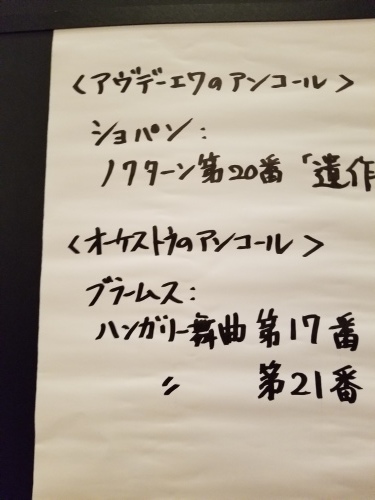 ＜アヴデーエワのアンコール＞
ショパン：
ノクターン第20番「遺作
＜オーケストラのアンコール＞
ブラームス：
ハンガリー舞曲 第17番
〃 第21番